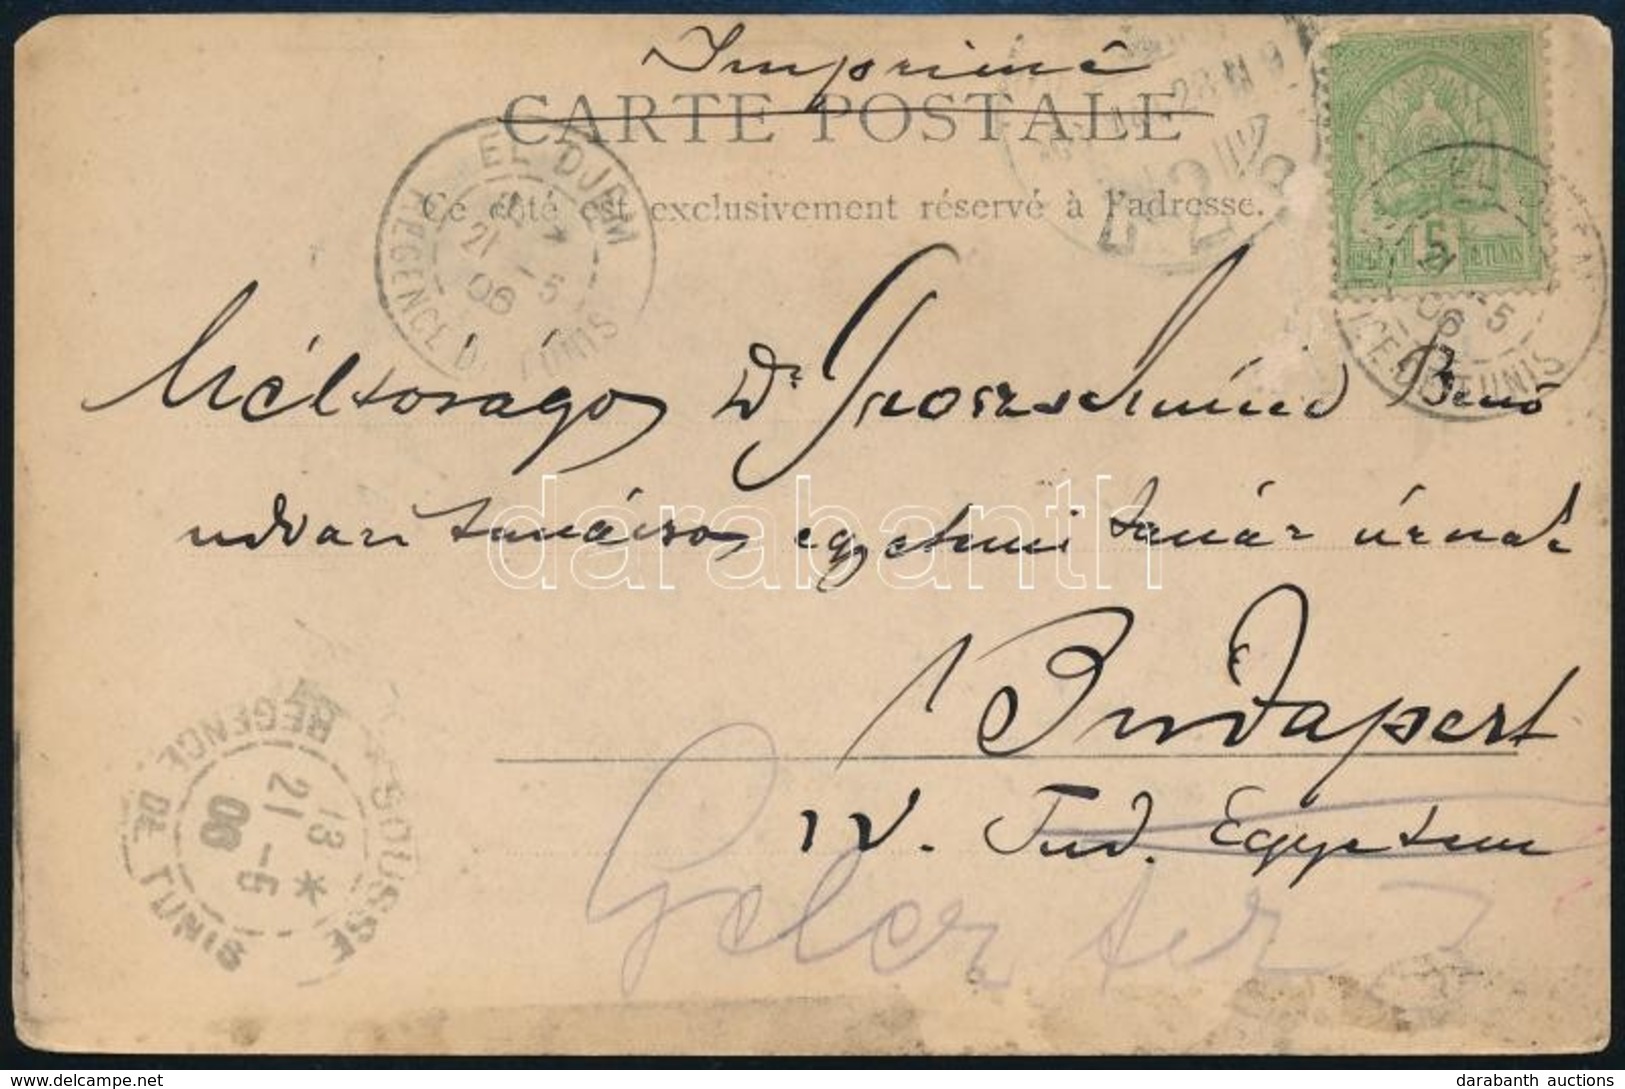 Imprimé
CARTE POSTALE
Ce côté est exclusivement réservé à l'adresse.
EL DJEM
21 -5
06
REGENCE DE TUNIS
POSTES
5
21 -5
06
REGENCE DE TUNIS
Méltoságos Dr Groszschmid Benő
udvari tanácsos egyetemi tanár úrnak
darabanth
Budapest
IV. Tud. Egyetem
SOUSSE
13 *
21 -5
06
REGENCE DE TUNIS
darabanth auctions